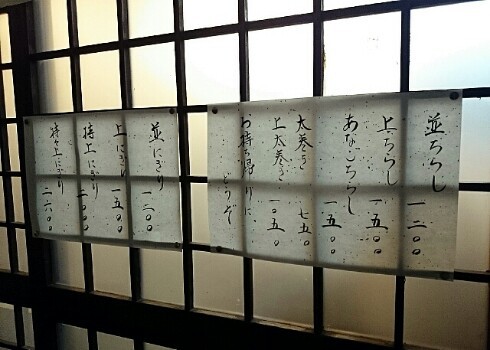 並ちらし 一二〇〇
上ちらし 一五〇〇
あなごちらし 一五〇〇
太巻き 七五〇
上太巻き 一〇五〇
お持ち帰りに
どうぞ
並にぎり 一二〇〇
上にぎり 一五〇〇
特上にぎり 二〇〇〇
特々上にぎり 二六〇〇